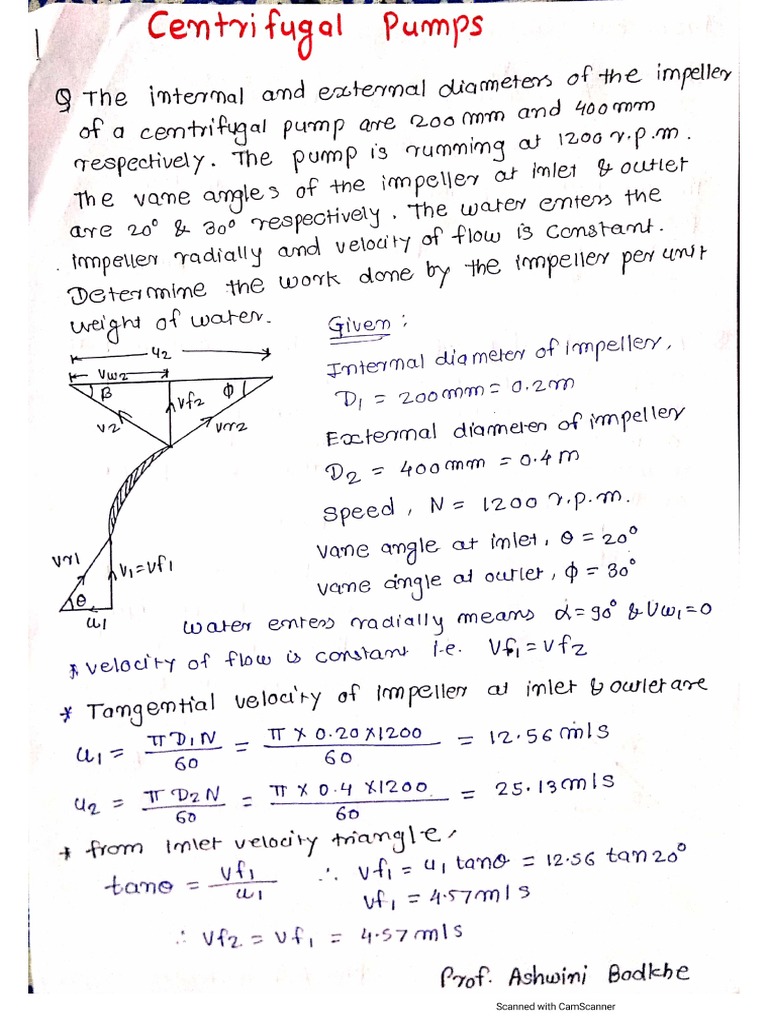 1
Centrifugal Pumps
Q The internal and external diameters of the impeller
of a centrifugal pump are 200mm and 400mm
respectively. The pump is running at 1200 r.p.m.
The vane angles of the impeller at inlet & outlet
are 20° & 30° respectively. The water enters the
impeller radially and velocity of flow is constant.
Determine the work done by the impeller per unit
weight of water.
Given :
u2
Vw2
β
Vf2
Φ
V2
Vr2
Internal diameter of impeller,
D1 = 200mm = 0.2m
External diameter of impeller
D2 = 400mm = 0.4m
Speed, N = 1200 r.p.m.
Vane angle at inlet, θ = 20°
Vane angle at outlet, Φ = 30°
Vr1
V1=Vf1
θ
u1
Water enters radially means α=90° & Vw1=0
* Velocity of flow is constant i.e. Vf1 = Vf2
* Tangential velocity of impeller at inlet & outlet are
u1 = πD1N/60 = π x 0.20 x 1200/60 = 12.56 m/s
u2 = πD2N/60 = π x 0.4 x 1200/60 = 25.13 m/s
* from inlet velocity triangle,
tanθ = Vf1/u1 ∴ Vf1 = u1 tanθ = 12.56 tan20°
Vf1 = 4.57 m/s
∴ Vf2 = Vf1 = 4.57 m/s
Prof. Ashwini Bodkhe
Scanned with CamScanner